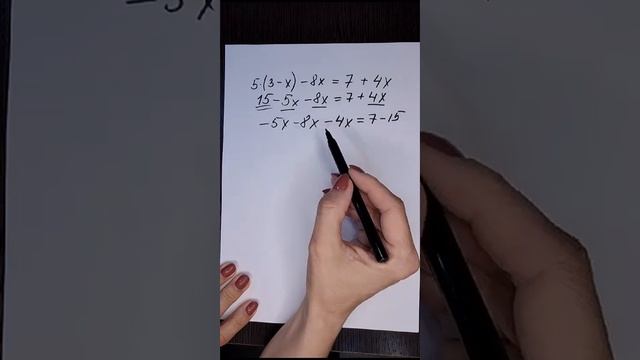 5·(3-x)-8x = 7 + 4x
15-5x-8x = 7 + 4x
-5x-8x-4x = 7-15